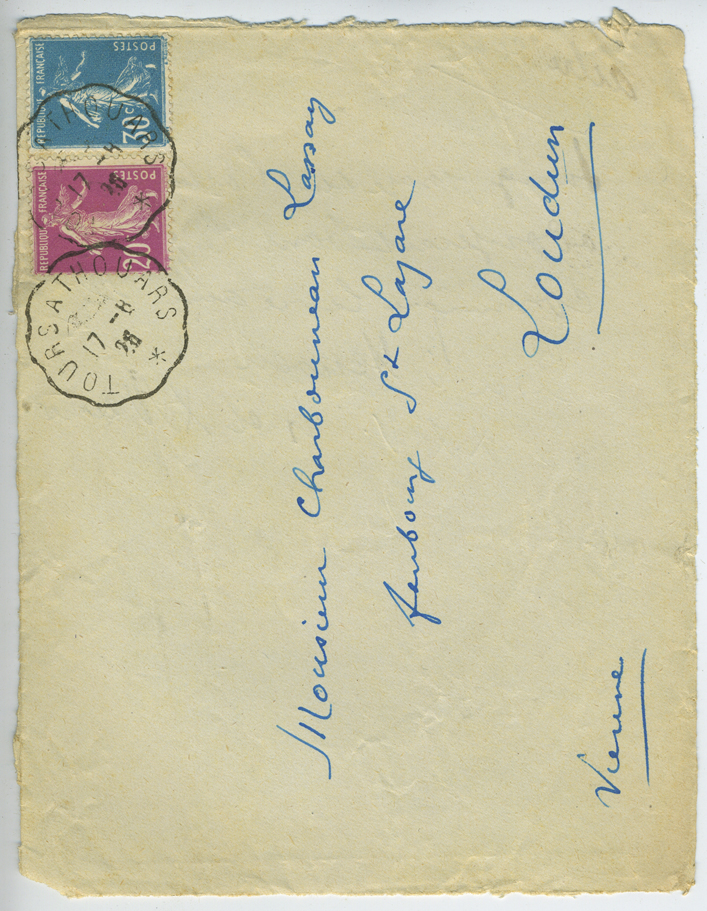 REPUBLIQUE FRANÇAISE
POSTES
30C
REPUBLIQUE FRANÇAISE
POSTES
20C
TOURS A THOUARS *
17 -8
26
TOURS A THOUARS *
17 -8
26
Monsieur Charbonneau Lassay
faubourg St Lazare
Loudun
Vienne